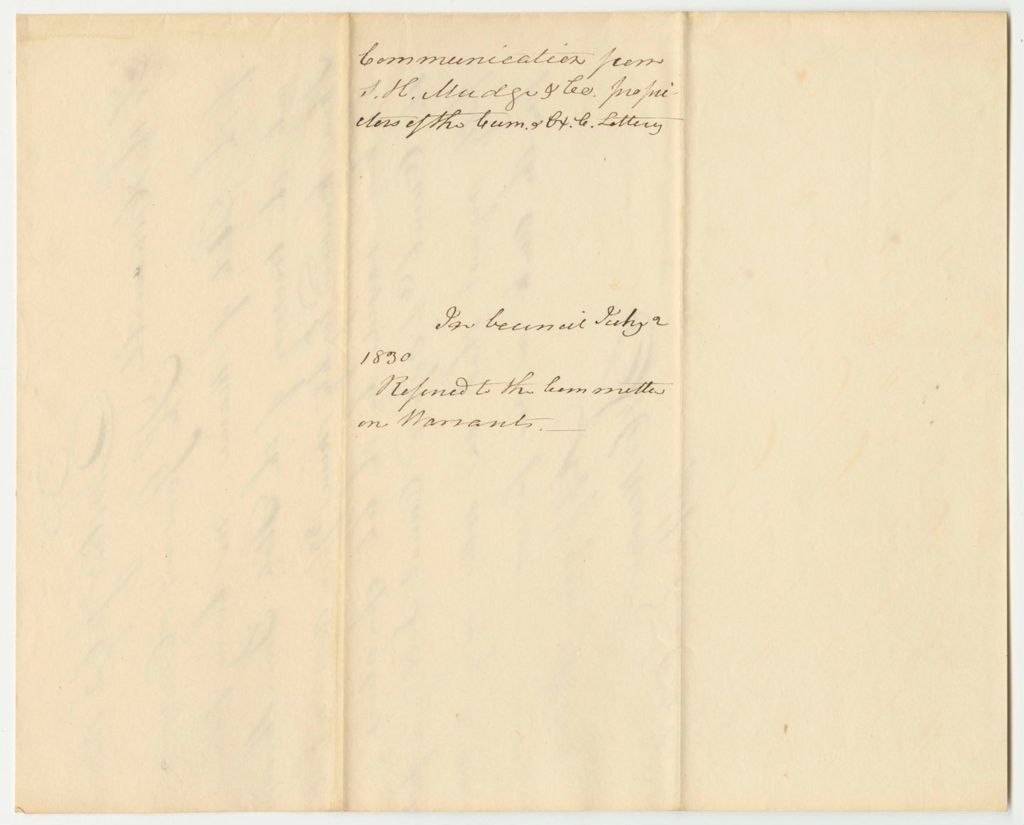 Communication from
S. H. Mudge & Co. propri-
etors of the Cum. & Ox. C. Lottery
In Council July 2
1830
Referred to the Committee
on Warrants.